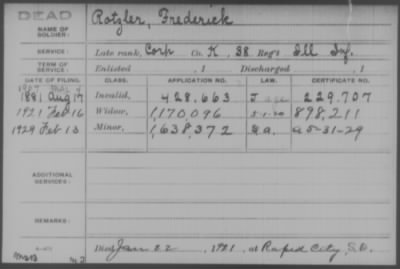 DEAD
NAME OF SOLDIER: Rotzler, Frederick
SERVICE: Late rank, Corp Co. K, 38 Reg't Ill Inf.
TERM OF SERVICE: Enlisted , 1 Discharged , 1
DATE OF FILING. CLASS. APPLICATION NO. LAW. CERTIFICATE NO.
1881 Aug 17 Invalid, 428.663 229.707
1921 Feb 16 Widow, 1,170,096 5-1-20 898,211
1929 Feb 13 Minor, 1,638,372 G.a. a 5-31-29
ADDITIONAL SERVICES:
REMARKS:
Died Jan 22, 1921, at Rapid City, S.D.